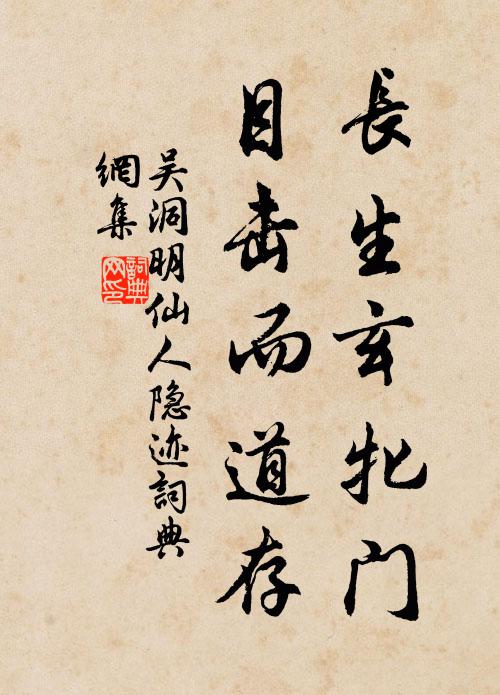 長生玄牝门
目击而道存
吴洞明仙人隐迹詞典
網集
詞典
网印